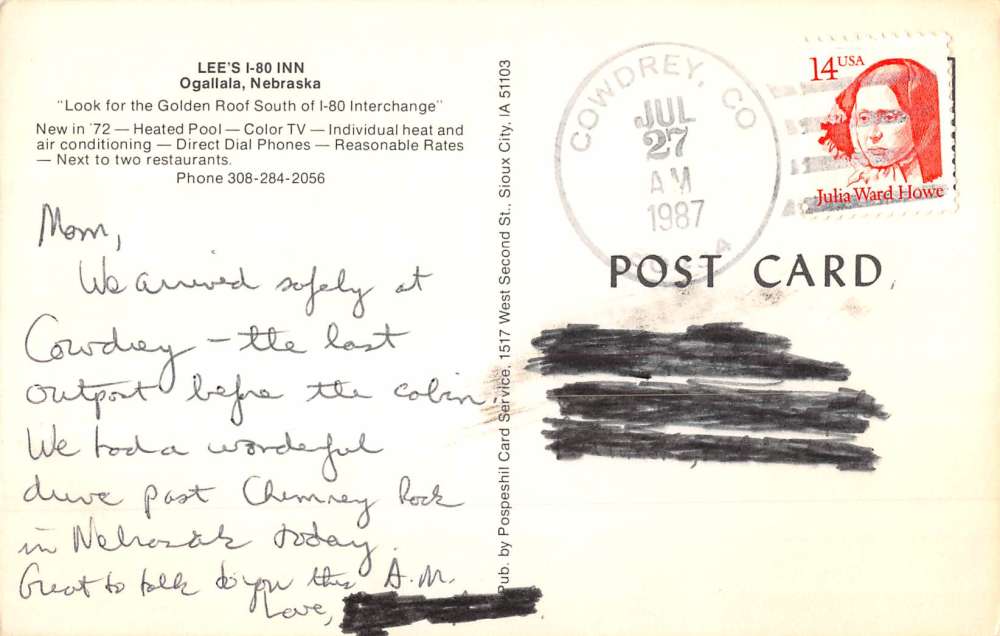 LEE'S I-80 INN
Ogallala, Nebraska
"Look for the Golden Roof South of I-80 Interchange"
New in '72 — Heated Pool — Color TV — Individual heat and
air conditioning — Direct Dial Phones — Reasonable Rates
— Next to two restaurants.
Phone 308-284-2056
Mom,
We arrived safely at
Cowdrey – the last
outpost before the cabin.
We had a wonderful
drive past Chimney Rock
in Nebraska today.
Great to talk to you this A.M.
Love,
Pub. by Pospeshil Card Service, 1517 West Second St., Sioux City, IA 51103
COWDREY, CO
JUL
27
AM
1987
14 USA
Julia Ward Howe
POST CARD